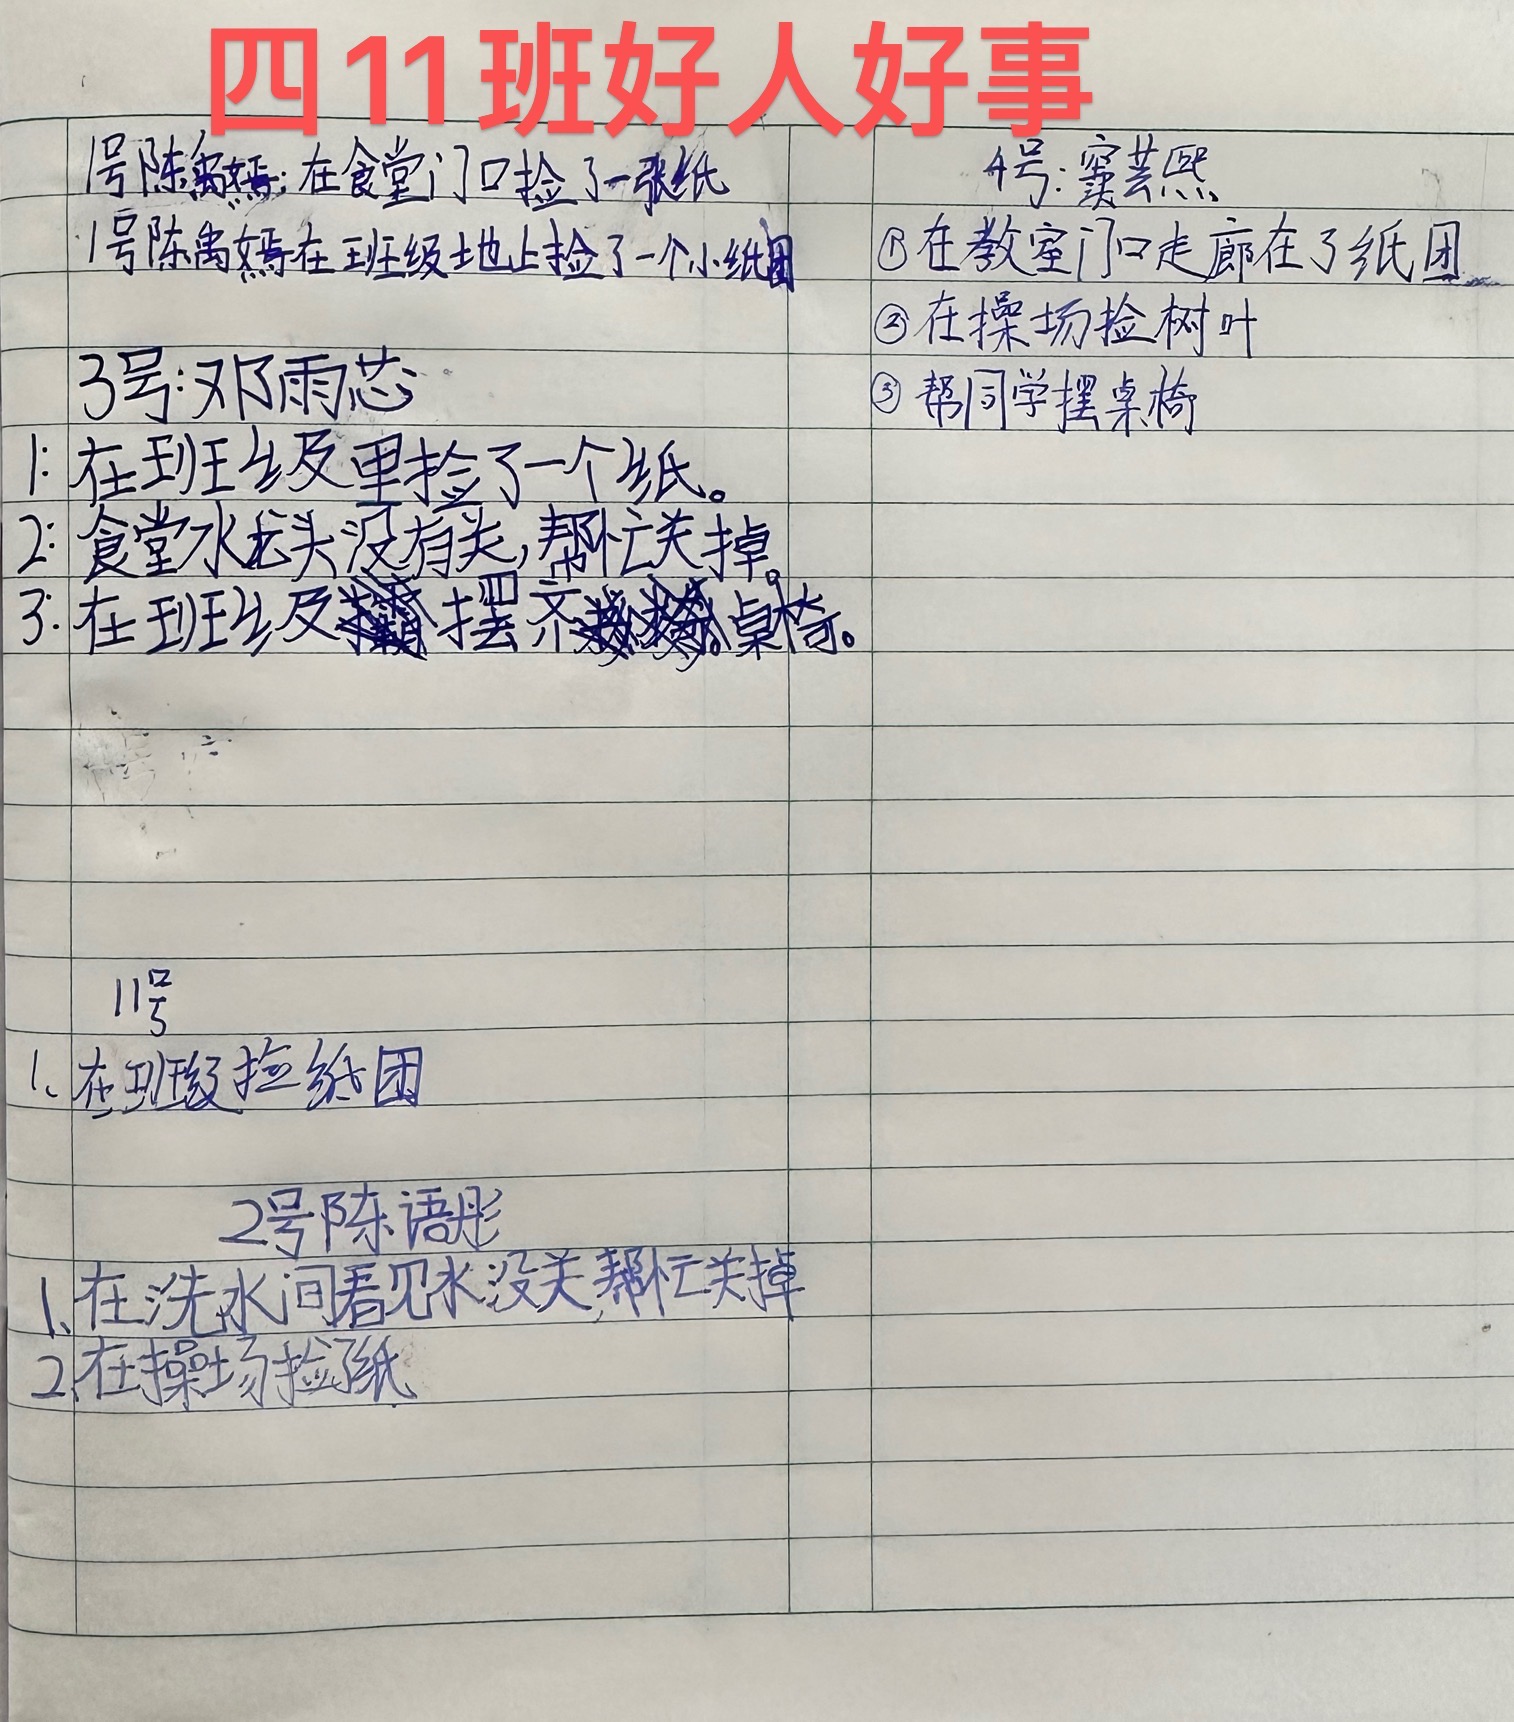 四11班好人好事
1号陈禹嫣:在食堂门口捡了一张纸
1号陈禹嫣在班级地上捡了一个小纸团
3号:邓雨芯
1:在班级里捡了一个纸。
2:食堂水龙头没有关,帮忙关掉。
3:在班级摆齐桌椅。
11号
1、在班级捡纸团
2号陈语彤
1、在洗水间看见水没关,帮忙关掉
2、在操场捡了纸
4号:窦芸熙
①在教室门口走廊在了纸团
②在操场捡树叶
③帮同学摆桌椅